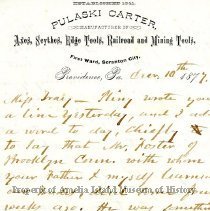 ESTABLISHED 1841.
PULASKI CARTER,
MANUFACTURER OF
Axes, Scythes, Edge Tools, Railroad and Mining Tools.
First Ward, Scranton City.
Providence, Pa., 10th 1877.
Miss Craig - wrote you
a line yesterday, and I add
a word to day, chiefly
to say that Mr. Foster of
Brooklyn Conn. with whom
your Father & myself learned
Property of Amelia Island Museum of History
weeks ago. He was